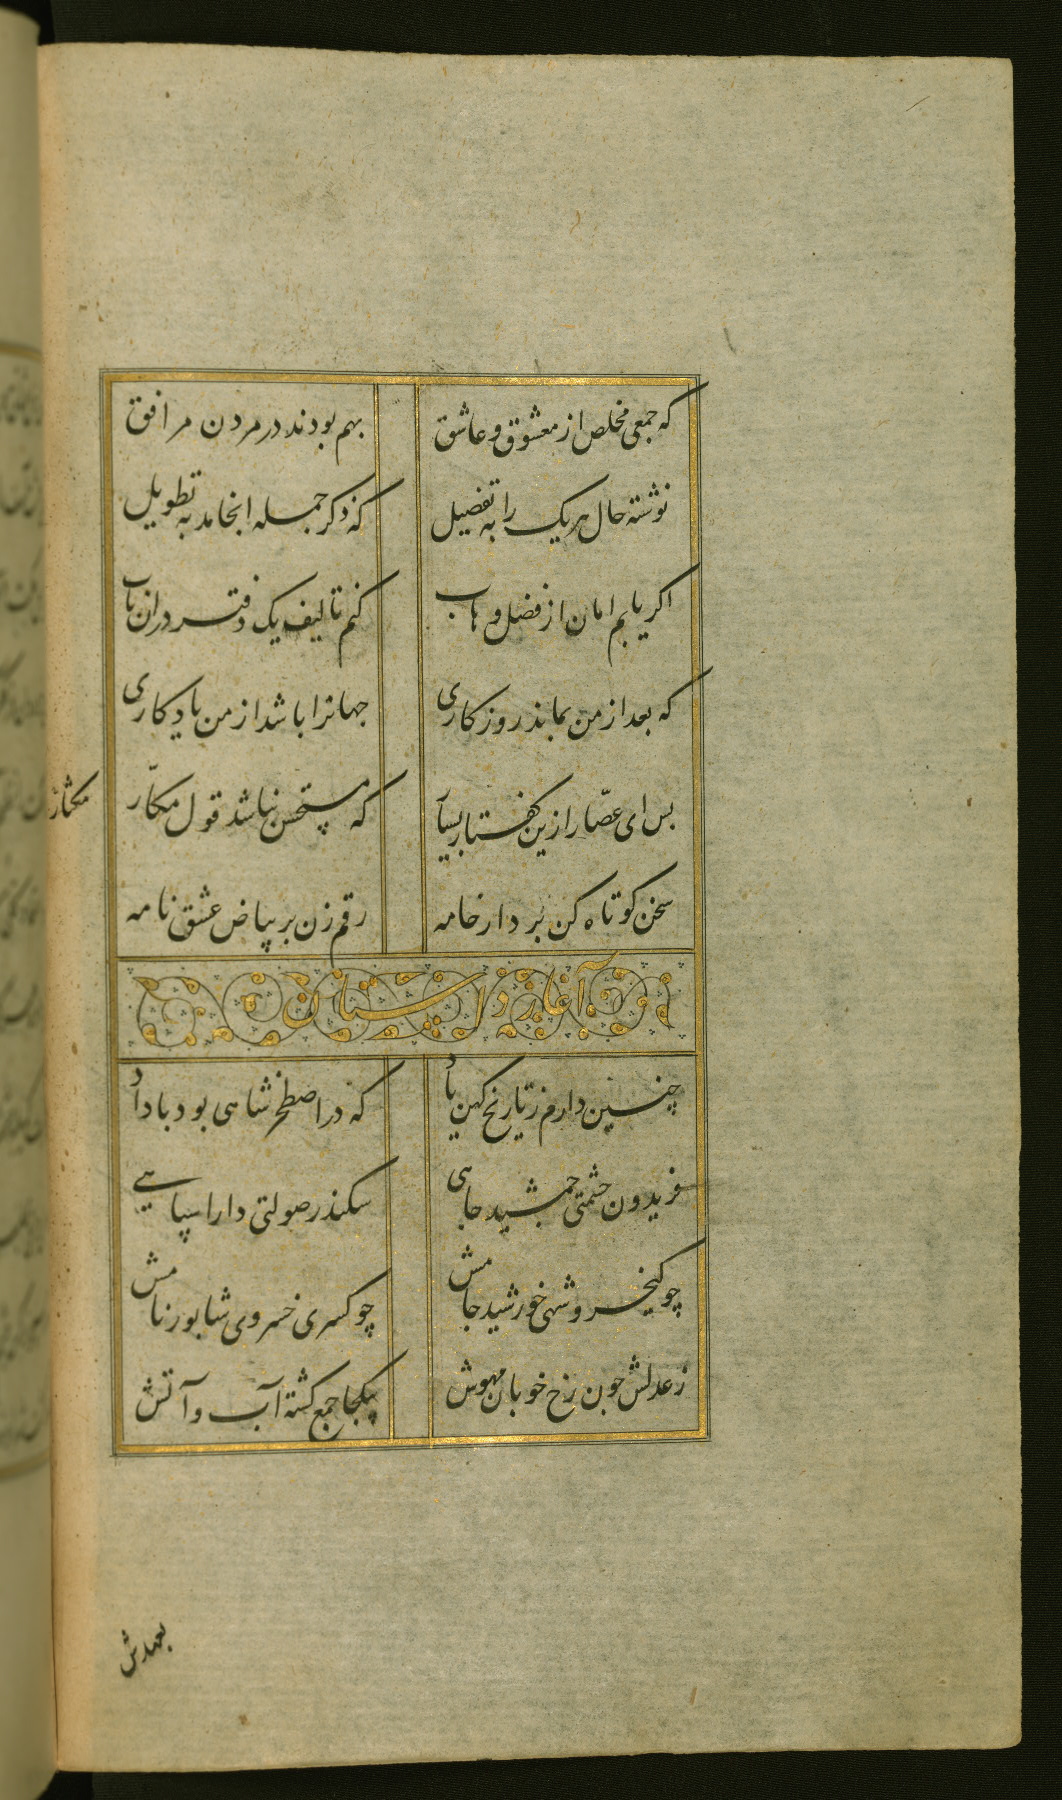 که جمعی مخلص از معشوق و عاشق بهم بودند در مردن مرافق
نوشته حال هریک را به تفضیل که ذکر جمله انجامد به تطویل
اکر یابم امان از فضل وهاب کنم تالیف یک دفتر در ان باب
که بعد از من بماند روزکاری جهانرا باشد از من یادکاری
بس ای عصّار ازین کفتار بسیار که مستحسن نباشد قول مکثار
مکثار
سخن کوتاه کن بردار خامه رقم زن بر بیاض عشق نامه
آغاز داستان
چنین دارم ز تاریخ کهن یاد که در اصطخر شاهی بود با داد
فریدون حشمتی جمشید جاهی سکندر صولتی دارا سپاهی
چو کیخسرو شهی خورشید جامش چو کسری خسروی شابور نامش
ز عدلش چون رخ خوبان مهوش بیکجا جمع کشته آب و آتش
بعهدش